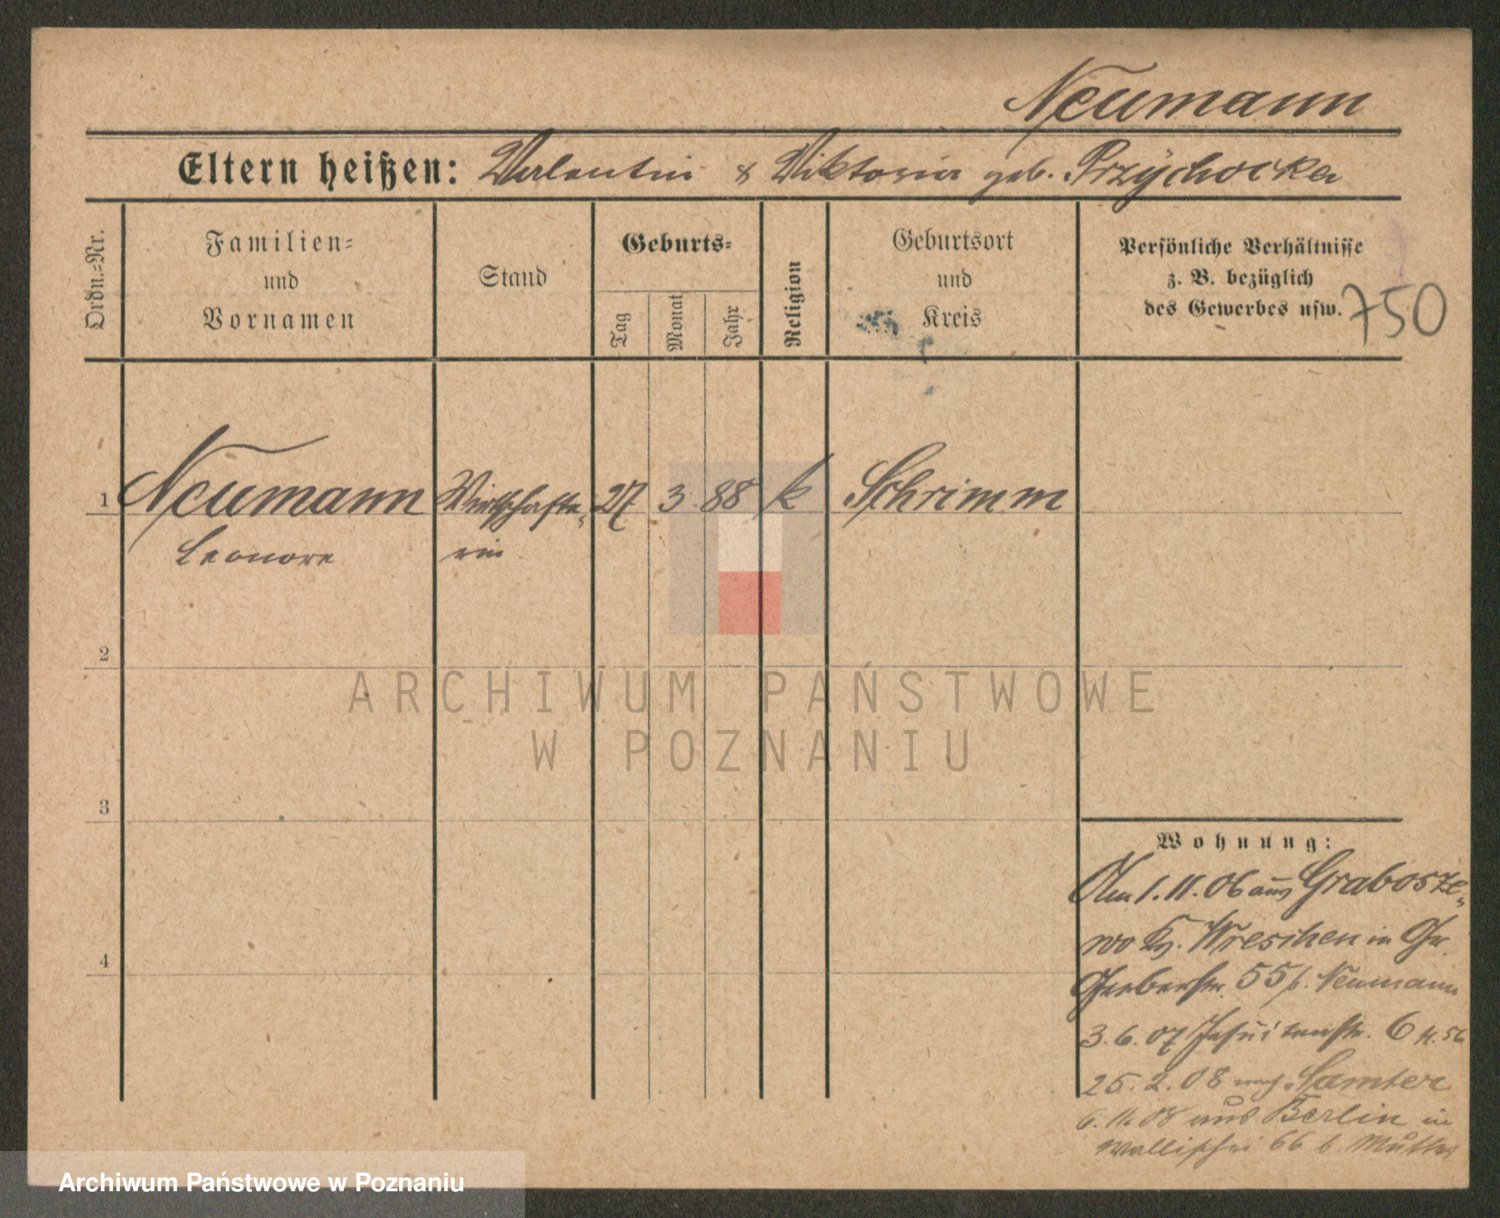 Neumann
Eltern heißen: Valentin & Viktoria geb. Przychocka
Ordn.-Nr.
Familien-
und
Vornamen
Stand
Geburts-
Tag
Monat
Jahr
Religion
Geburtsort
und
Kreis
Persönliche Verhältnisse
z. B. bezüglich
des Gewerbes usw.
750
1 Neumann Wirtschafte- 27 3. 88 k Schrimm
Leonore rin
2
3
4
ARCHIWUM PAŃSTWOWE
W POZNANIU
Wohnung:
Am 1.11.06 aus Grabosze-
wo Kr. Wreschen in Gr.
Gerberstr. 55 b. Neumann
3.6.07 Jesuitenstr. 6
25.2.08 nach Samter
6.11.08 aus Berlin in
Wallischei 66 b. Mutter
Archiwum Państwowe w Poznaniu